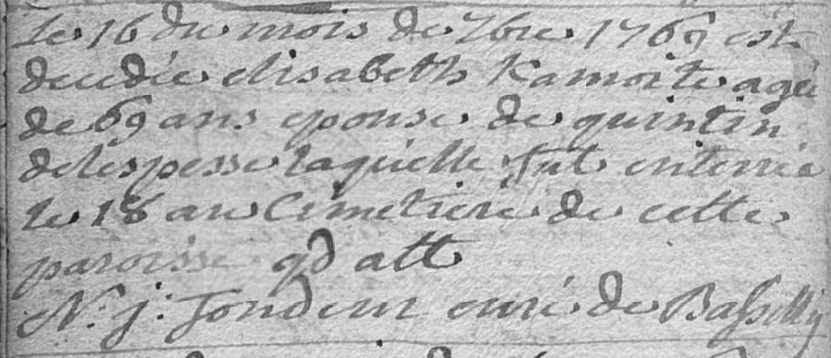 Le 16 du mois de 7bre 1769 est
decedée elisabeth Kamoite agée
de 69 ans epouse de quintin
delespesse laquelle fut enterrée
le 18 au Cimetiere de cette
paroisse qd att
N: j: Tondeur curé de Bassilly